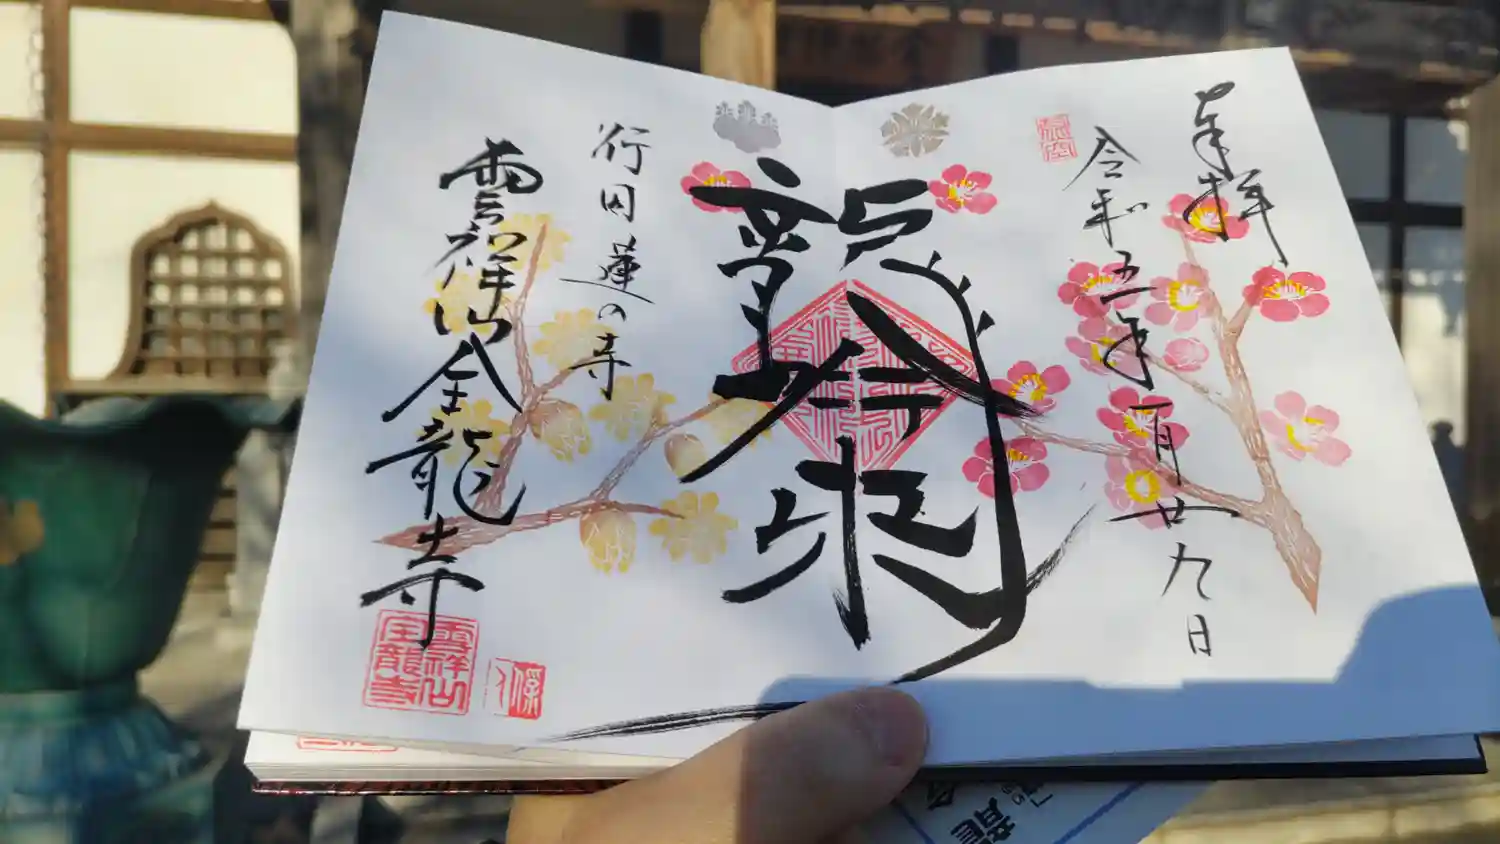 奉拝
令和五年一月廿九日
龍
行田蓮の寺
雲祥山全龍寺
雲祥山
全龍寺